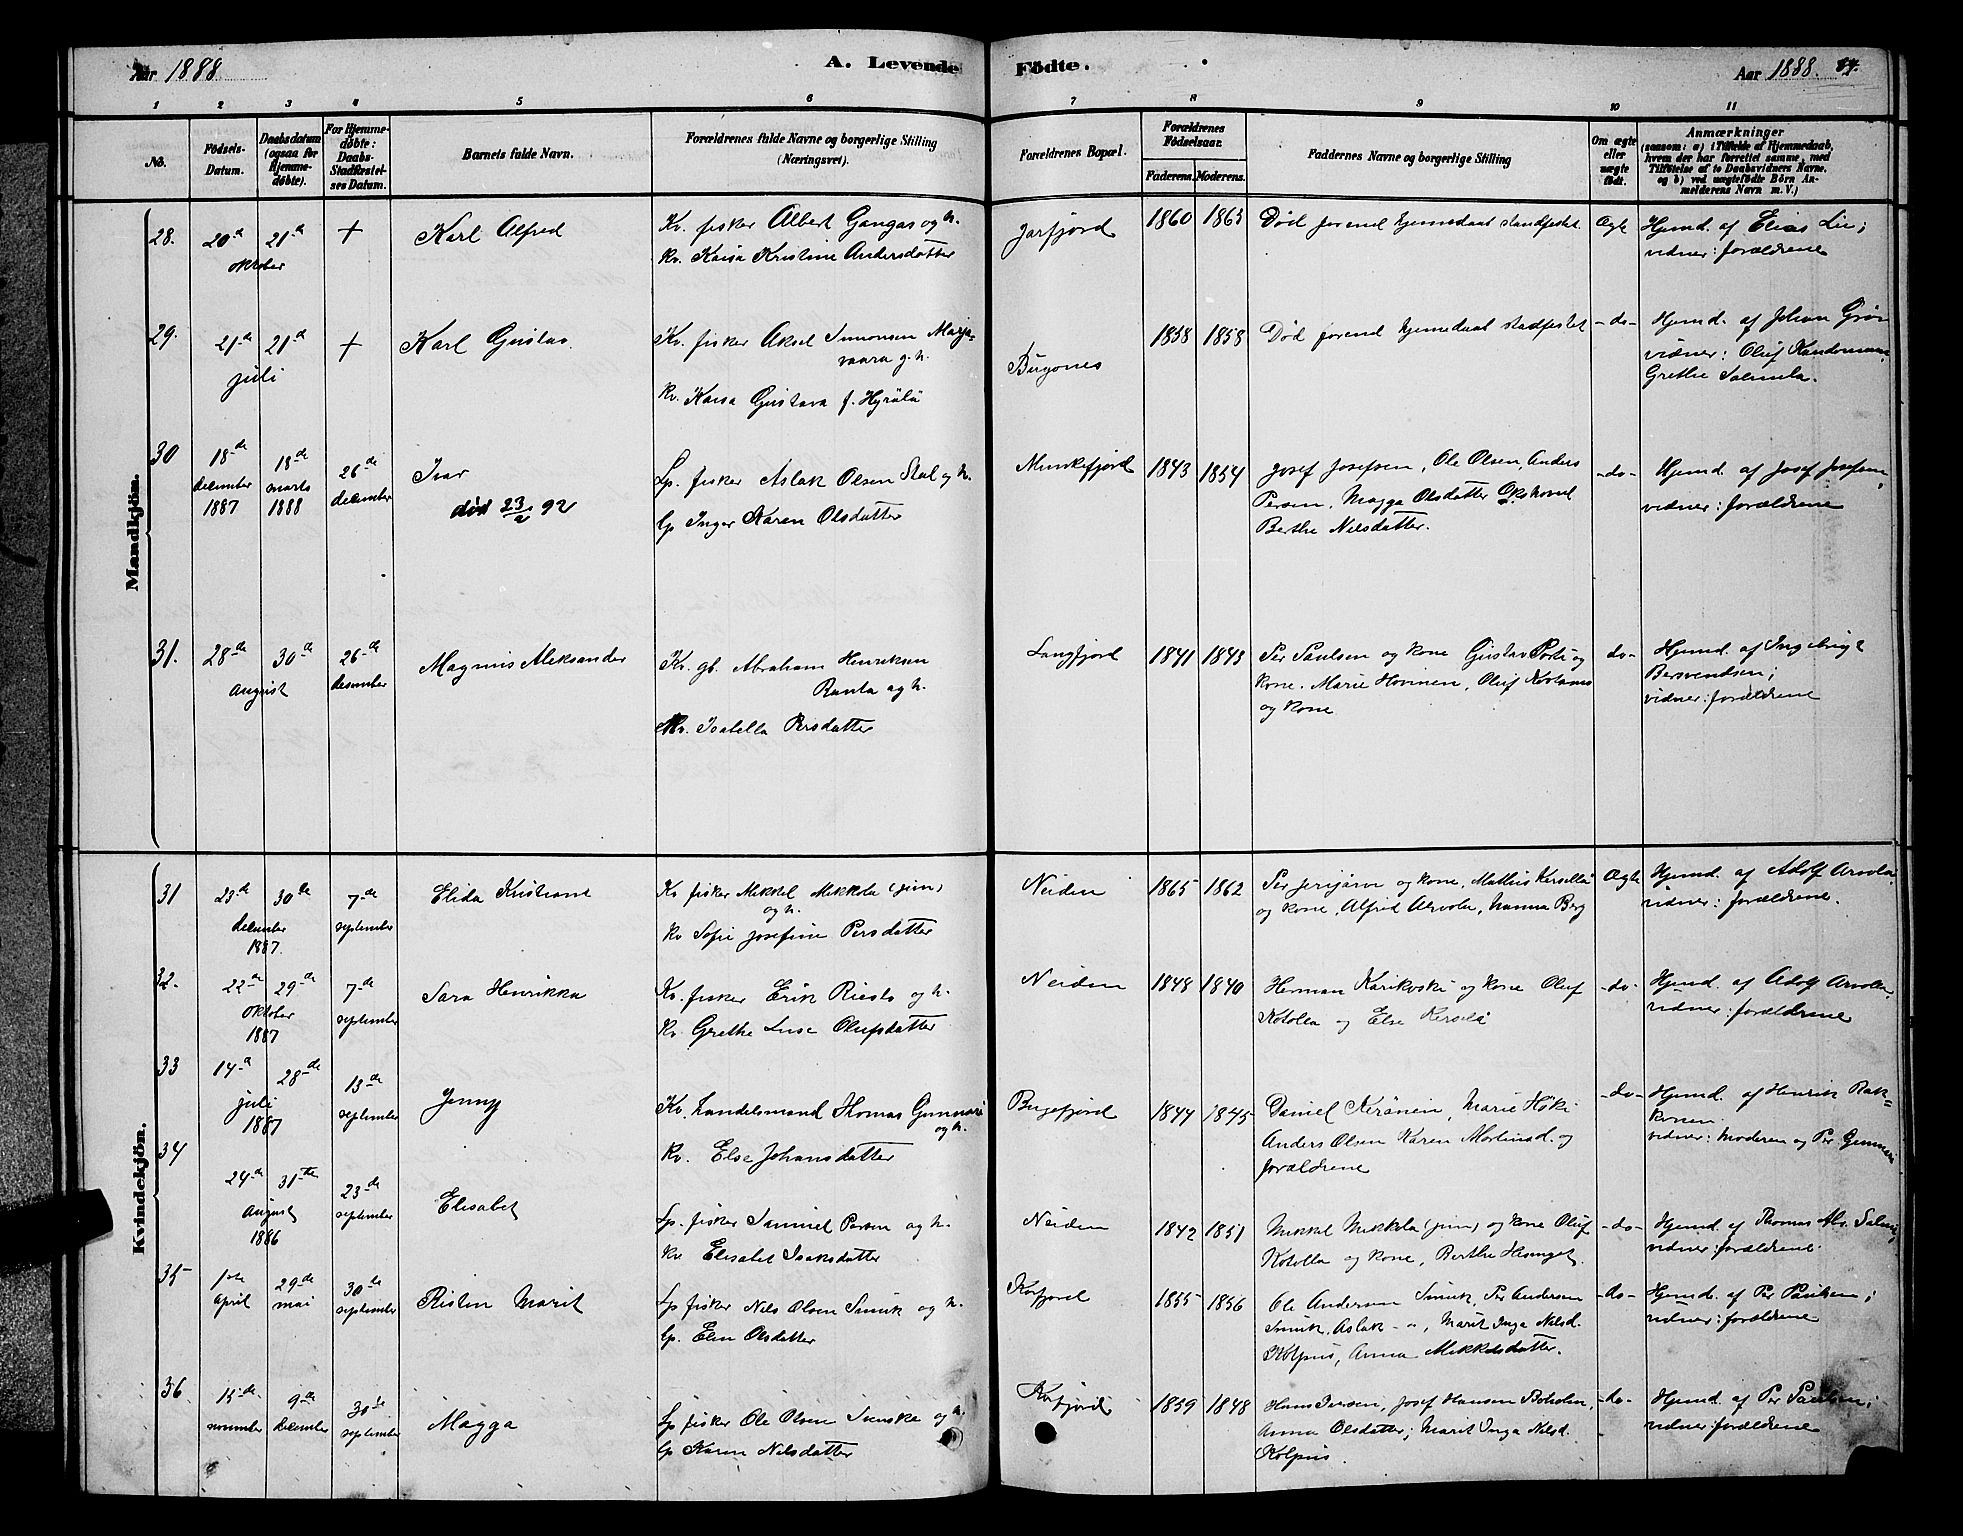 Aar 1888.
A. Levende
Födte.
Aar 1888. 84.
1 2 3 4 5 6 7 8 9 10 11
No.
Födsels-
Datum.
Daabsdatum
(ogsaa for
Hjemme-
döbte).
For Hjemme-
döbte:
Daabs-
Stadfæstel-
ses Datum.
Barnets fulde Navn.
Forældrenes fulde Navne og borgerlige Stilling
(Næringsvei).
Forældrenes Bopæl.
Forældrenes
Födselsaar.
Faderens. Moderens.
Faddernes Navne og borgerlige Stilling
Om ægte
eller
uægte
födt.
Anmærkninger
(saasom: a) i Tilfælde af Hjemmedaab,
hvem der har forrettet samme, med
Tilföielse af to Daabsvidners Navne,
og b) ved uægtefödte Börn An-
melderens Navn m. V.)
Mandkjön.
28.
20de
oktober
21de
+
Karl Alfred
Kv. fisker Albert Gangas og h.
kv. Kaisa Kristine Andersdatter
Jarfjord
1860 1863
Død forend hjemmedaab stadfestet
Ægte
Hjemd. af Elias Lie;
vidner: forældrene
29.
21de
juli
21de
+
Karl Gustav.
Kv. fisker Aksel Simonsen Marja-
vaara og h.
kv. Kaisa Gustava f. Hyrölä
Bugönes
1858 1858
Død forend hjemmedaab stadfestet
-do-
Hjemd. af Johan
vidner: Oluf
Grethe
30
18de
december
1887
18de
marts
1888
26de
december
Ivar
død 23/2 92
Lp. fisker Aslak Olsen Stal og h.
lp Inger Karen Olsdatter
Munkefjord
1843 1854
Josef Josefsen, Ole Olsen, Anders
Persen, Magga Olsdatter
Berthe Nilsdatter.
-do-
Hjemd. af Josef Josefsen,
vidner: forældrene
31.
28de
august
30de
26de
desember
Magnus Aleksander
Kv. gb. Abraham Henriksen
Ranta og h.
Kv. Isabella Persdatter
Langfjord
1841 1843
Per Paulsen og kone Gustav Porti og
kone. Marie Hominen, Oluf
og kone
do-
Hjemd. af Ingebrigt
Bersvendsen;
vidner: forældrene
Kvindekjön.
31
23de
december
1887.
30de
7de
september
Elida Kristiane
Kv fisker Mikkel Mikkola (jun)
og h.
kv Sofie Josefine Persdatter
Neiden
1865 1862
Per Jerijärvi og kone, Mathis Kersellä
og kone, Alfred Arvola, Hanna Berg
Ægte
Hjemd. af Adolf Arvola
vidner: forældrene.
32.
22de
oktober
1887
29de
7de
september
Sara Henrikka
Kv. fisker Erik Riesto og h.
kv. Grethe Lise Olufsdatter
Neiden
1848 1840
Herman Karikoski og kone Oluf
Kotolla og Else Kerselä
-do-
Hjemd. af Adolf Arvola,
vidner: forældrene
33
14de
juli
1887
28de
13de
september
Jenny
Kv. Landelsmand Thomas Gunnari
og h.
kv. Else Johansdatter
Bugøfjord
1844 1845
Daniel Keränein, Marie Höki
Anders Olsen Karen Mortensd. og
forældrene
-do-
Hjemd. af Henrik Rak-
konen
vidner: Moderen og Per Gunnari
34
24de
august
1886
31te
23de
september
Elisabet
Lp. fisker Simmel Persen og h.
kv. Elisabet Isaksdatter
Neiden
1842 1851
Mikkel Mikkola (jun) og kone Oluf
Kotolla og kone, Berthe
-do-
Hjemd. af Thomas
vidner: forældrene.
35
1ste
april
29de
mai
30de
september
Risten Marit
Lp fisker Nils Olsen Smuk og h.
lp. Elen Olsdatter
Korfjord
1855 1856
Ole Andersen Smuk, Per Andersen
Smuk, Aslak - ", Marit Inga Nilsd.
Kolpus, Anna Mikkelsdatter.
-do-
Hjemd. af Per Paulsen;
vidner: forældrene
36
15de
november
9de
december
30de
september
Magga
Lp fisker Ole Olsen Svenske og h.
lp Karen Nilsdatter
Korfjord
1859 1848
Hans Iversen, Josef Hansen Boholm,
Anna Olsdatter; Marit Inga Nilsd.
Kolpus.
-do-
Hjemd. af Per Paulsen;
vidner: forældrene